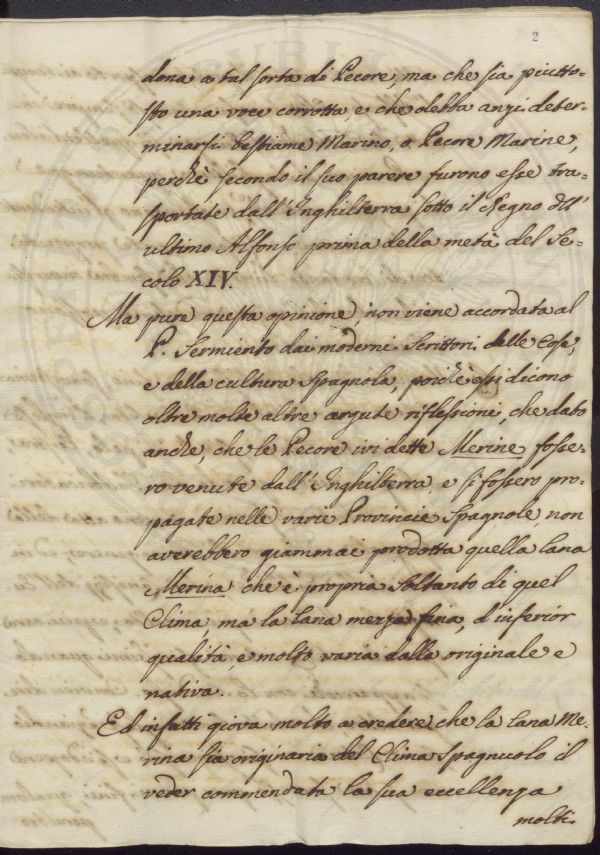 2
dona a tal sorta di Pecore, ma che sia piutto=
sto una voce corrotta, e che debba anzi deter=
minarsi bestiame Marino, o Pecore Marine,
perchè secondo il suo parere furono esse tra=
sportate dall'Inghilterra sotto il Regno dell'
ultimo Alfonso prima della metà del Se=
colo XIV.
Ma pure questa opinione, non viene accordata al
P. Sermiento dai moderni Scrittori delle Cose,
e della cultura Spagnola, poichè essi dicono
oltre molte altre argute riflessioni, che dato
anche, che le Pecore ivi dette Merine fosse=
ro venute dall'Inghilterra, e si fossero pro=
pagate nelle varie Provincie Spagnole, non
averebbero giammai prodotta quella lana
Merina che è propria soltanto di quel
Clima, ma la lana mezza fina, d'inferior
qualità, e molto varia dalla originale e
nativa.
Ed infatti giova molto a credere che la lana Me=
rina sia originaria del Clima Spagnuolo il
veder commendata la sua eccellenza
molti